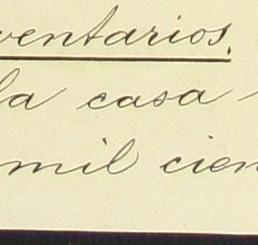 ventarios.
la casa
mil cien